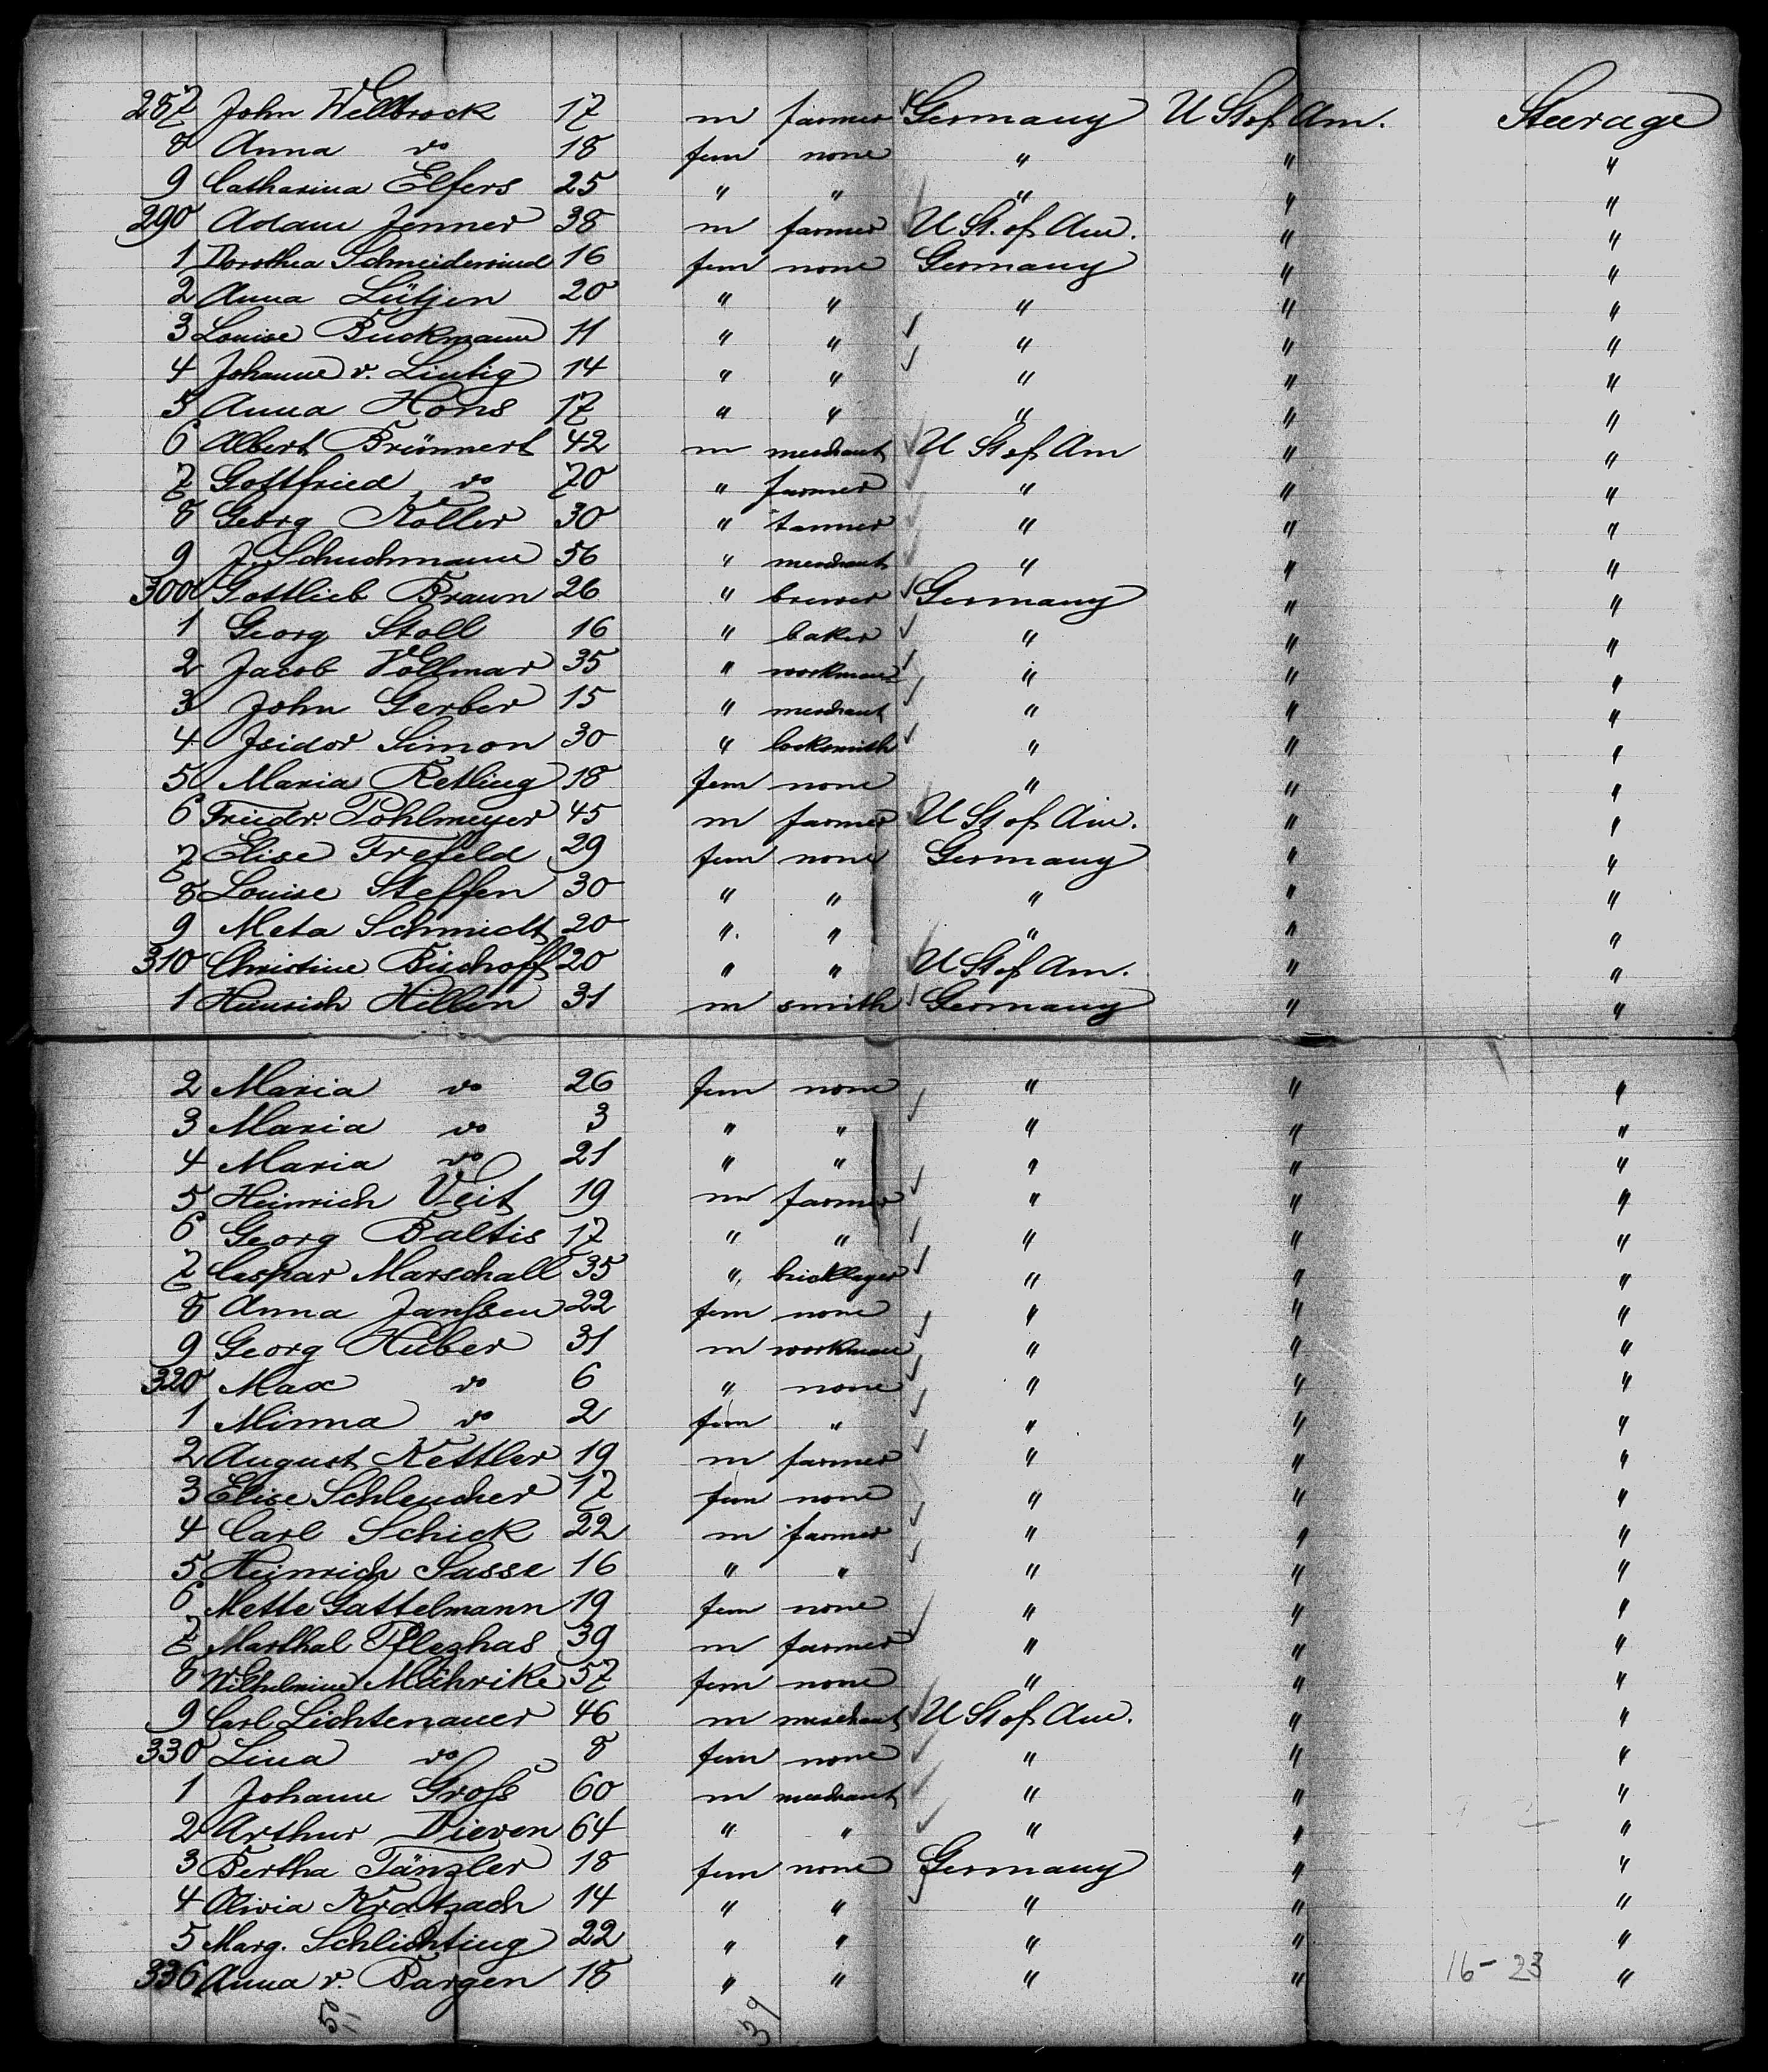 287 John Wellbrock 17 m farmer Germany U St of Am. Steerage
8 Anna do 18 fem none " " "
9 Catharina Elfers 25 " " " " "
290 Adam Jenner 38 m farmer U St. of Am. " "
1 Dorothea Schneiderwind 16 fem none Germany " "
2 Anna Lütjen 20 " " " " "
3 Louise Buckmann 11 " " " " "
4 Johanne v. Lintig 14 " " " " "
5 Anna Hons 17 " " " " "
6 Albert Brünnert 42 m merchant U St of Am " "
7 Gottfried do 70 " farmer " " "
8 Georg Koller 30 " tanner " " "
9 J. Schuchmann 56 " merchant " " "
300 Gottlieb Braun 26 " brewer Germany " "
1 Georg Stoll 16 " baker " " "
2 Jacob Vollmar 35 " workman " " "
3 John Gerber 15 " merchant " " "
4 Isidor Simon 30 " locksmith " " "
5 Maria Retling 18 fem none " " "
6 Friedr. Pohlmeyer 45 m farmer U St of Am. " "
7 Elise Trefeld 29 fem none Germany " "
8 Louise Steffen 30 " " " " "
9 Meta Schmidt 20 " " " " "
310 Christine Bischoff 20 " " U St of Am. " "
1 Heinrich Hellen 31 m smith Germany " "
2 Maria do 26 fem none " " "
3 Maria do 3 " " " " "
4 Maria do 21 " " " " "
5 Heinrich Veit 19 m farmer " " "
6 Georg Baltis 17 " " " " "
7 Caspar Marschall 35 " bricklayer " " "
8 Anna Janssen 22 fem none " " "
9 Georg Huber 31 m workman " " "
320 Max do 6 " none " " "
1 Minna do 2 fem " " " "
2 August Kettler 19 m farmer " " "
3 Elise Schleucher 17 fem none " " "
4 Carl Schick 22 m farmer " " "
5 Heinrich Sasse 16 " " " " "
6 Mette Gattelmann 19 fem none " " "
7 Marthal Pflezhas 39 m farmer " " "
8 Wilhelmine Mährike 57 fem none " " "
9 Carl Lichtenauer 46 m merchant U St of Am. " "
330 Lina do 8 fem none " " "
1 Johann Gross 60 m merchant " " "
2 Arthur Dieven 64 " " " " "
3 Bertha Tänzler 18 fem none Germany " "
4 Olivia Kratzach 14 " " " " "
5 Marg. Schlichting 22 " " " " "
336 Anna v. Bargen 18 " " " " 16-23 "
39